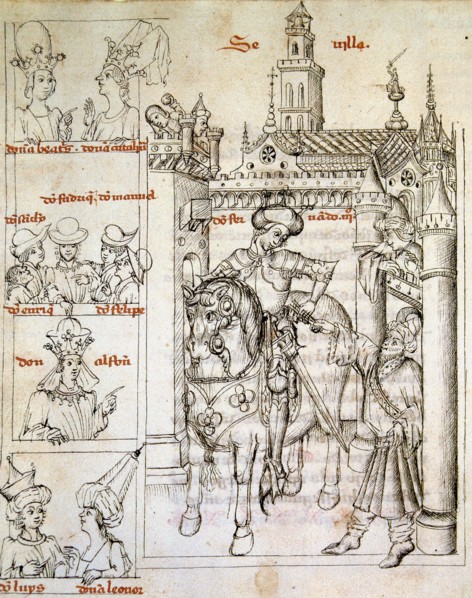 Se villa.
dona beats. dona catalina
do fadriq, do manuel
do sācho
do ferna do. iij
do enriq do felipe
don alfon
do luys dona leonor